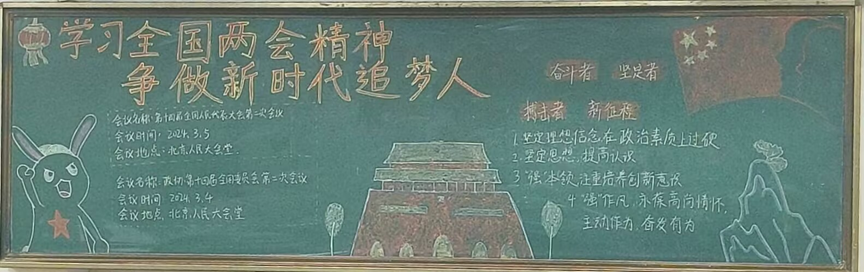 学习全国两会精神
争做新时代追梦人
会议名称:第十四届全国人民代表大会第二次会议
会议时间:2024.3.5
会议地点:北京人民大会堂
会议名称:政协第十四届全国委员会第二次会议
会议时间:2024.3.4
会议地点:北京人民大会堂
奋斗者 坚定者
搏击者 新征程
1.坚定理想信念在政治素质上过硬
2.坚定思想,提高认识
3"强"本领,注重培养创新意识
4"强"作风,永葆高尚情怀,
主动作为,奋发有为